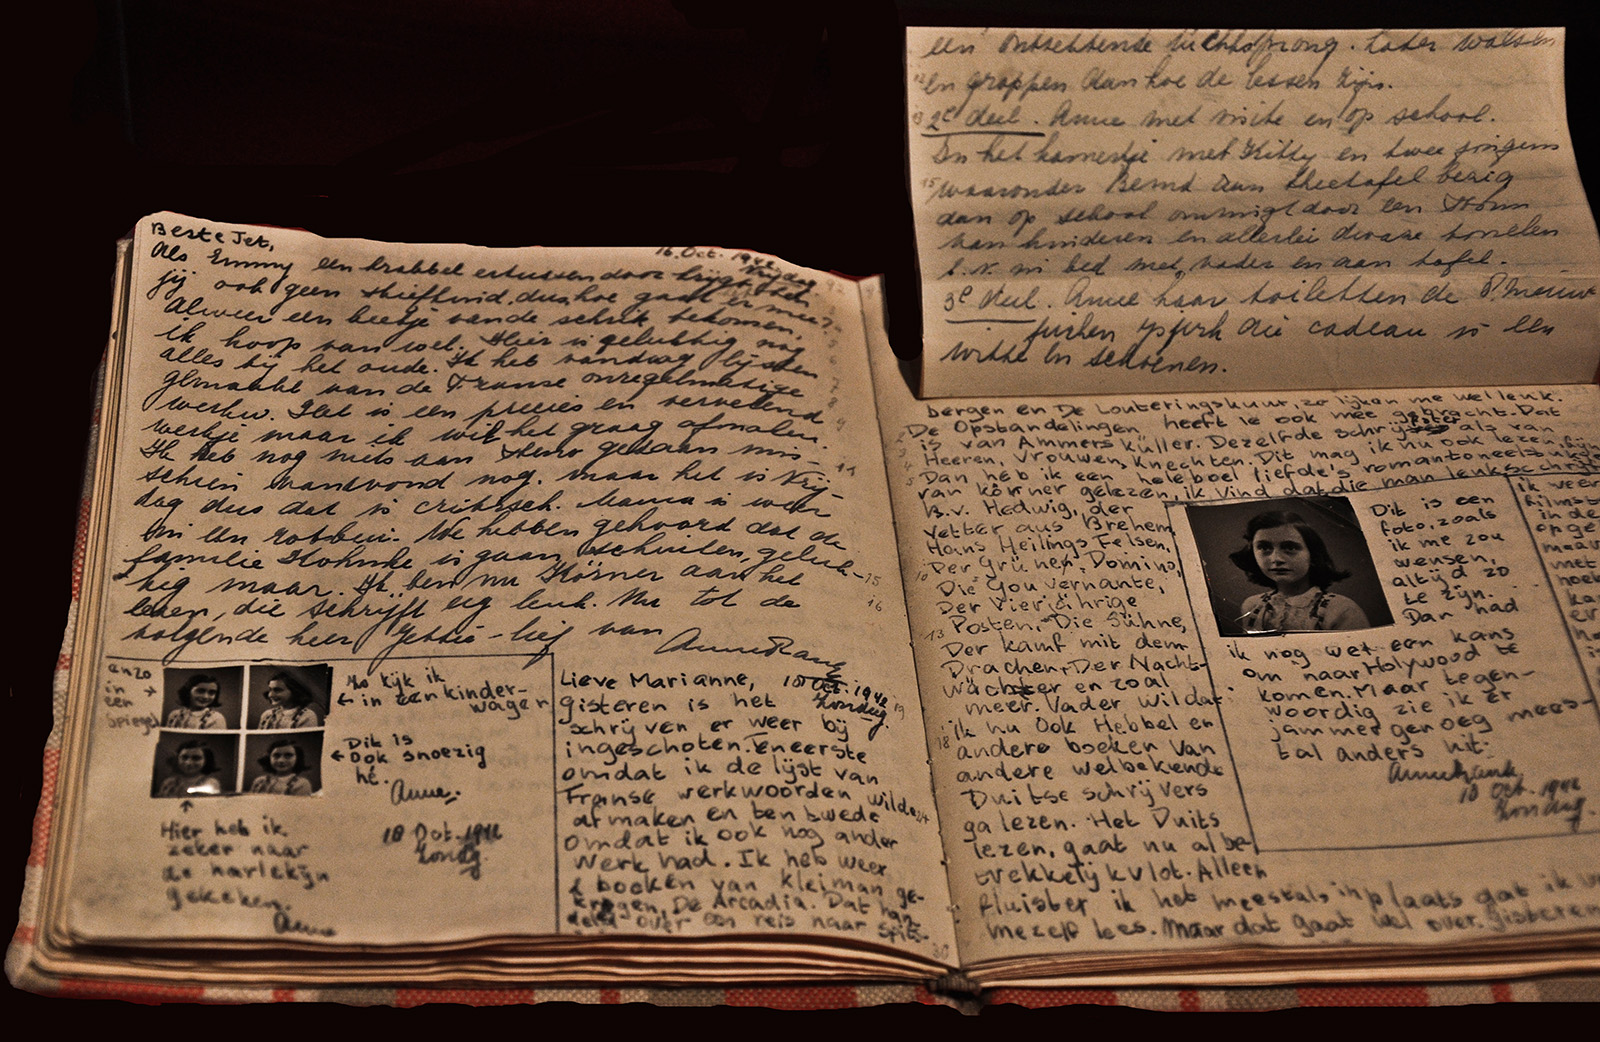 Beste Jet,
16. Oct. 1942
Vrijdag
Als Emmy een krabbel ertussendoor krijgt, ben
jij ook geen stiefkind, dus hoe gaat er mee?
Alweer een beetje van de schrik bekomen,
ik hoop van wel. Hier is gelukkig nog
alles bij het oude. Ik heb vandaag lijsten
gemaakt van de Franse onregelmatige
werkw. Dat is een precies en vervelend
werkje maar ik wil het graag afmaken.
Ik heb nog niets aan Steno gedaan mis-
schien vanavond nog. maar het is Vrij-
dag dus dat is critisch. Mama is weer
in een
We hebben gehoord dat de
familie is gaan schuilen, geluk-
kig maar. Ik ben nu Körner aan het
lezen, die schrijft erg leuk. Nu tot de
volgende keer Jettie-lief van
Anne Frank
enzo
in
een
spiegel
Zo kijk ik
in een kinder-
wagen
Dit is
ook snoezig
hè.
Anne.
18 Oct. 1942
Zondag.
Hier heb ik
zeker naar
de harlekijn
gekeken.
Anne
Lieve Marianne,
18 Oct. 1942
Zondag.
gisteren is het
schrijven er weer bij
ingeschoten. Teneerste
omdat ik de lijst van
Franse werkwoorden wilde
afmaken en ten twede
omdat ik ook nog ander
werk had. Ik heb weer
2 boeken van Kleiman ge-
kregen, De Arcadia. Dat han-
deld over een reis naar Spits-
een ontzettende luchtsprong. Later walsen
en grappen aan hoe de lessen zijn.
2e deel. Anne met visite en op school.
In het kamertje met Kitty en twee jongens
waaronder Bernd aan theetafel bezig
dan op school omringt door een
van kinderen en allerlei dwaze
b.v. in bed met vader en aan tafel.
3e deel. Anne haar toiletten de
die cadeau is een
witte en schoenen.
bergen en De Louteringskuur, zo lijken me wel leuk.
De Opstandelingen, heeft ie ook mee gebracht. Dat
is van Ammers Küller. Dezelfde schrijfster als van
Heeren, Vrouwen, Knechten. Dit mag ik nu ook lezen, fijn
Dan heb ik een heleboel liefde's romantoneelstukjes
van körner gelezen, ik vind dat die man leuk schrijft
B.v. Hedwig, der
Vetter aus Brehem,
Hans Heilings Felsen,
Der Grünen Domino,
Die Gouvernante,
Der Vierjährige
Posten, Die Sühne,
Der kamf mit dem
Drachen, Der Nacht-
wächter en zoal
meer. Vader wil dat
ik nu ook Hebbel en
andere boeken van
andere welbekende
Duitse schrijvers
ga lezen. Het Duits
lezen, gaat nu al be-
trekkelijk vlot. Alleen
fluister ik het meestal, inplaats dat ik v
mezelf lees. Maar dat gaat wel over. gisteren
Dit is een
foto, zoals
ik me zou
wensen,
altijd zo
te zijn.
Dan had
ik nog wel een kans
om naar Holywood te
komen. Maar tegen-
woordig zie ik er
jammer genoeg mees-
tal anders uit.
Anne Frank
18 Oct. 1942
Zondag.
ik weer
filmst
in de
opge
maar
met